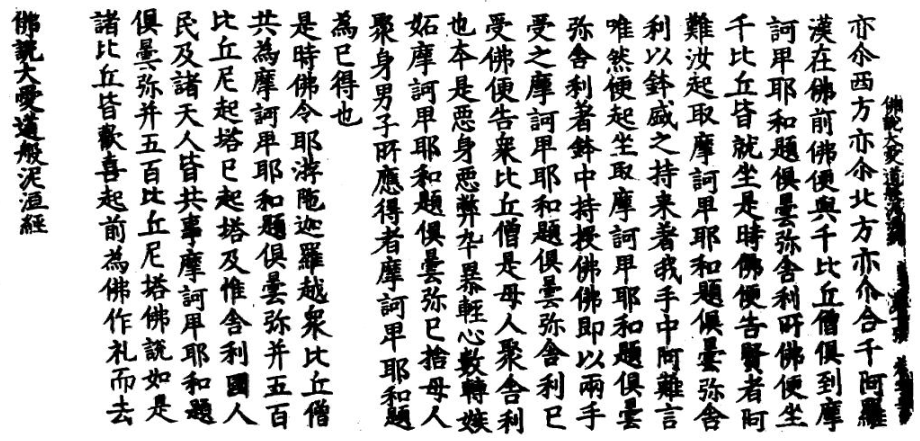 佛說大愛道般泥洹經
亦尒西方亦尒北方亦尒合千阿羅
漢在佛前佛便與千比丘僧俱到摩
訶卑耶和題俱曇弥舍利所佛便坐
千比丘皆就坐是時佛便告賢者阿
難汝起取摩訶卑耶和題俱曇弥舍
利以鉢盛之持来著我手中阿難言
唯然便起坐取摩訶卑耶和題俱曇
弥舍利著鉢中持授佛佛即以兩手
受之摩訶卑耶和題俱曇弥舍利已
受佛便告衆比丘僧是母人聚舍利
也本是惡身惡弊卒暴輕心數轉嫉
妬摩訶卑耶和題俱曇弥已捨母人
聚身男子所應得者摩訶卑耶和題
為已得也
是時佛令耶游陁迦羅越衆比丘僧
共為摩訶卑耶和題俱曇弥并五百
比丘尼起塔已起塔及惟舍利國人
民及諸天人皆共事摩訶卑耶和題
俱曇弥并五百比丘尼塔佛說如是
諸比丘皆歡喜起前為佛作礼而去
佛說大愛道般泥洹經